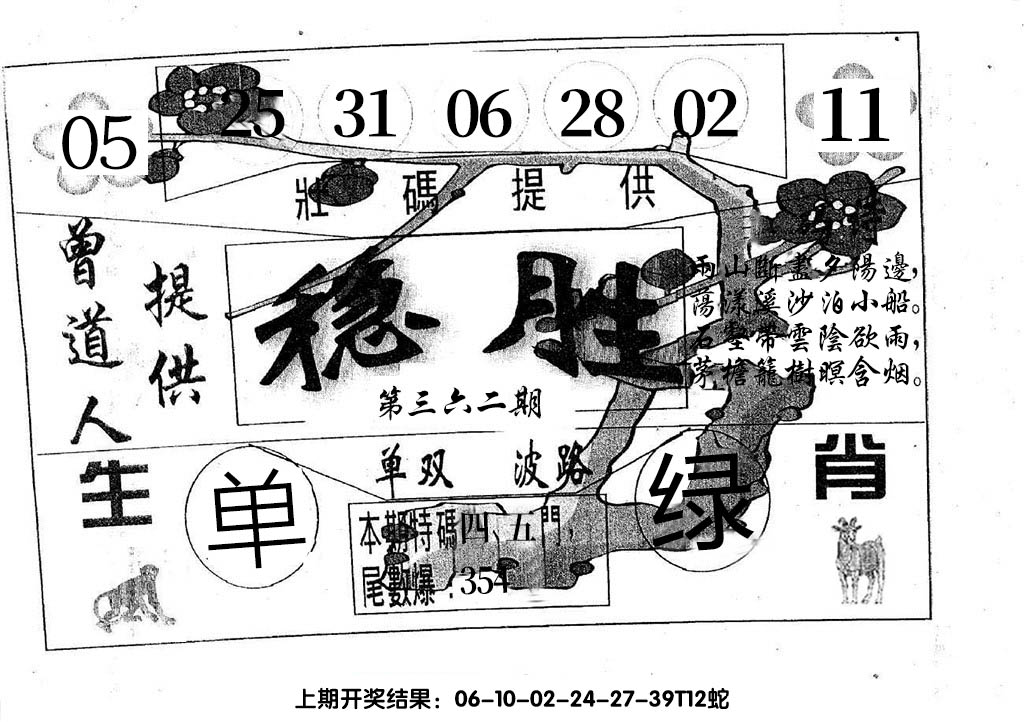 05 25 31 06 28 02 11
壯碼提供
特
曾道人
提供
稳胜
第三六二期
兩山斷盡夕陽邊，
蕩漾溪沙泊小船。
石壑帶雲陰欲雨，
茅檐籠樹暝含烟。
生
单
单双 波路
绿
肖
本期特碼四、五門，
尾數爆：354
上期开奖结果：06-10-02-24-27-39T12蛇